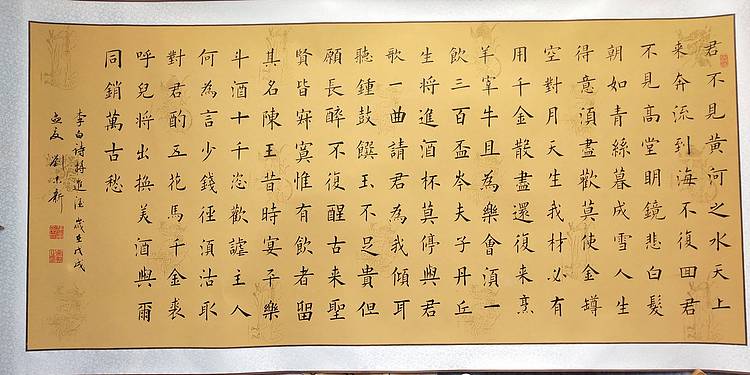 君不見黃河之水天上
来奔流到海不復回君
不見高堂明鏡悲白髮
朝如青絲暮成雪人生
得意須盡歡莫使金罇
空對月天生我材必有
用千金散盡還復来烹
羊宰牛且為樂會須一
飲三百盃岑夫子丹丘
生將進酒杯莫停與君
歌一曲請君為我傾耳
聽鍾鼓饌玉不足貴但
願長醉不復醒古来聖
賢皆寂寞惟有飲者留
其名陳王昔時宴平樂
斗酒十千恣歡謔主人
何為言少錢徑須沽取
對君酌五花馬千金裘
呼兒將出換美酒與爾
同銷萬古愁
李白詩將進酒 歲在戊戌
孟夏 劉